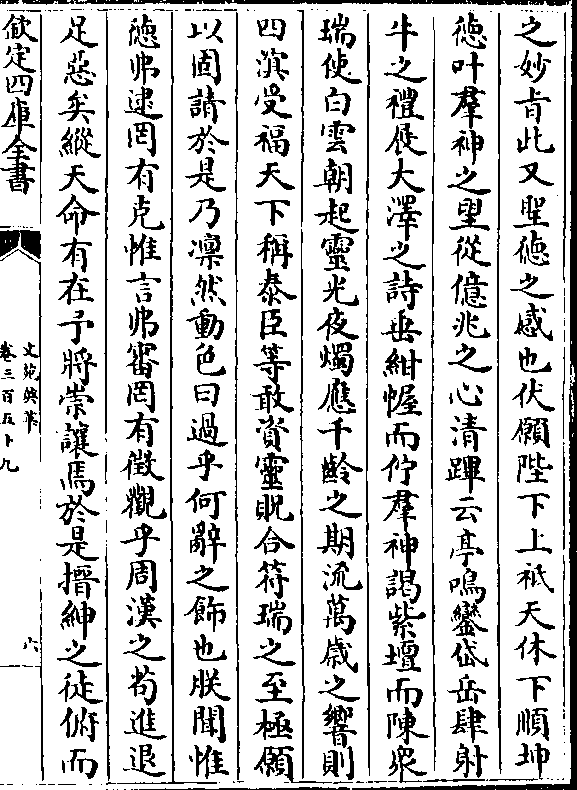 之妙旨此又聖徳之感也伏願陛下上祗天休下順坤
徳叶羣神之望從億兆之心清蹕云亭鳴鑾岱岳肆射
牛之禮展大澤之詩垂紺幄而佇羣神謁紫壇而陳衆
瑞使白雲朝起靈光夜燭應千齡之期流萬歲之響則
四滨受福天下稱泰臣等敢資靈貺合符瑞之至極願
以固請於是乃凛然動色曰過乎何辭之飾也朕聞惟
徳弗逮罔有克惟言弗審罔有徴觀乎周漢之茍進退
足惡矣縱天命有在予將崇讓焉於是搢紳之徒俯而
欽定四庫全書
文苑英華
卷三百五十九
六